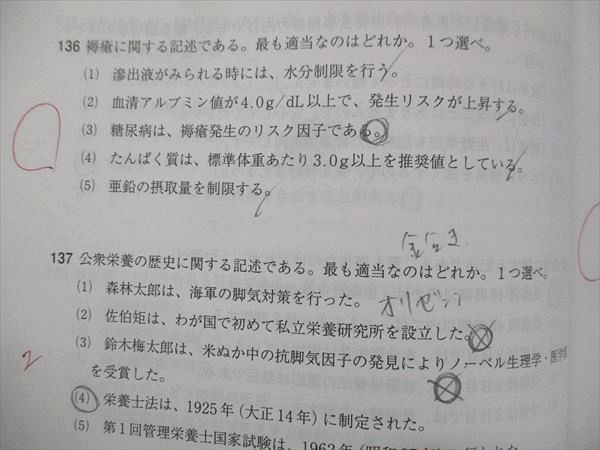 136 褥瘡に関する記述である。最も適当なのはどれか。1つ選べ。
(1) 滲出液がみられる時には、水分制限を行う。
(2) 血清アルブミン値が4.0g/dL以上で、発生リスクが上昇する。
(3) 糖尿病は、褥瘡発生のリスク因子である。
(4) たんぱく質は、標準体重あたり3.0g以上を推奨値としている。
(5) 亜鉛の摂取量を制限する。
137 公衆栄養の歴史に関する記述である。最も適当なのはどれか。1つ選べ。
(1) 森林太郎は、海軍の脚気対策を行った。 オリザニン
(2) 佐伯矩は、わが国で初めて私立栄養研究所を設立した。
(3) 鈴木梅太郎は、米ぬか中の抗脚気因子の発見によりノーベル生理学・医学
を受賞した。
2
(4) 栄養士法は、1925年(大正14年)に制定された。
(5) 第1回管理栄養士国家試験は、1962年